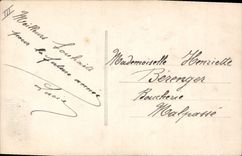 III
Meilleurs Souhaits
pour la future année
Mademoiselle Henriette
Bérenger
Boucherie
Malpassé